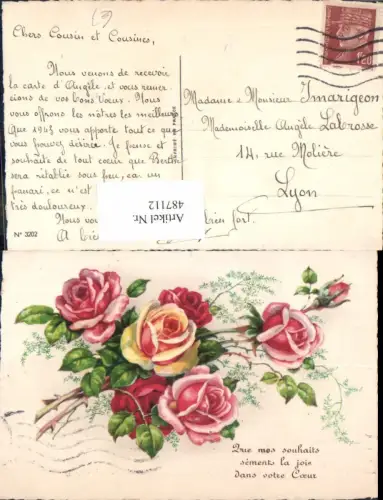 (3)
Chers Cousin et Cousines,
Nous venons de recevoir
la carte d'Angèle et vous remer-
cions de vos bons Vœux. Nous
vous offrons les nôtres les meilleurs
Que 1943 vous apporte tout ce que
vous pouvez désirer. Je pense et
souhaite de tout cœur que Berthe
sera rétablie sous peu, car un
panari, ce n'est
très douloureux.
Nous vous
bien fort.
N° 3202
Madame & Monsieur Imarigeon
Mademoiselle Angèle Labrosse
14, rue Molière
Lyon
Artikel Nr.
487112
Que mes souhaits
sèment la joie
dans votre Cœur